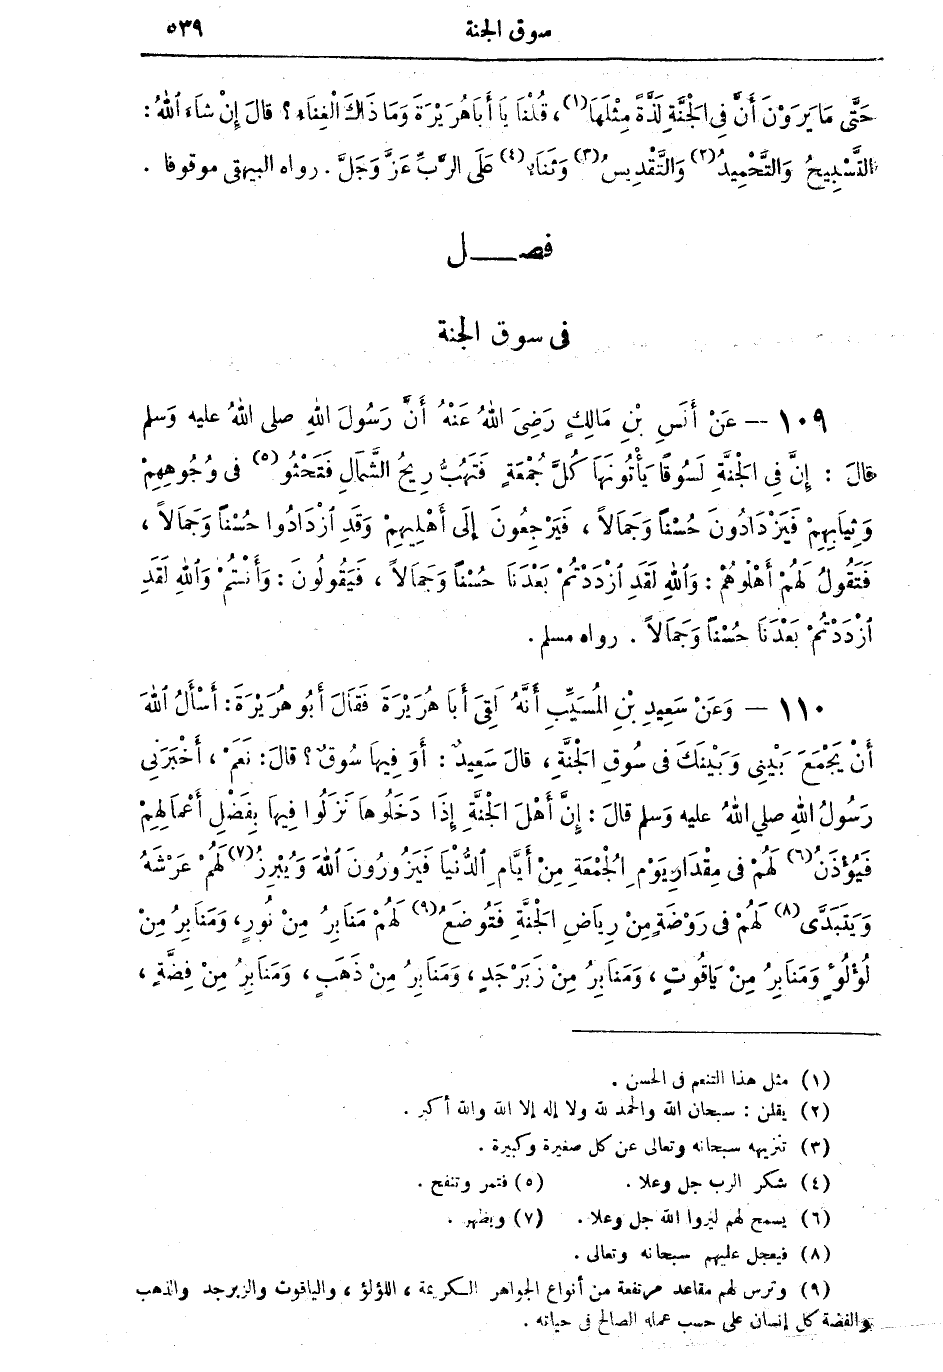 سوق الجنة ٥٣٩
حَتَّى مَا يَرَوْنَ أَنَّ فِى الْجَنَّةِ لَذَّةً مِثْلَهَا(١)، قُلْنَا يَا أَبَا هُرَيْرَةَ وَمَا ذَاكَ الْغِنَاءِ؟ قالَ إِنْ شاءَ اللهُ:
التَّسْبِيحُ وَالتَّحْمِيدُ(٢) وَالتَّقْدِيسُ(٣) وَثَنَاءٌ(٤) عَلَى الرَّبِّ عَزَّ وَجَلَّ. رواه البيهقى موقوفا.
فصــــل
فى سوق الجنة
١٠٩ — عَنْ أَنَسِ بْنِ مَالِكٍ رَضِىَ اللهُ عَنْهُ أَنَّ رَسُولَ اللهِ صلى اللهُ عليه وَسلم
قالَ : إِنَّ فِى الْجَنَّةِ لَسُوقًا يَأْتُونَهَا كُلَّ جُمُعَةٍ فَتَهُبُّ رِيحُ الشَّمَالِ فَتَحْثُو(٥) فى وُجُوهِهِمْ
وَثِيَابِهِمْ فَيَزْدَادُونَ حُسْنًا وَجَمَالاً، فَيَرْجِعُونَ إِلَى أَهْلِيهِمْ وَقَدِ ازْدَادُوا حُسْنًا وَجَمَالاً،
فَتَقُولُ لَهُمْ أَهْلُوهُمْ: وَاللهِ لَقَدِ ازْدَدْتُمْ بَعْدَنَا حُسْنًا وَجَمَالاً، فَيَقُولُونَ: وَأَنْتُمْ وَاللهِ لَقَدِ
ازْدَدْتُمْ بَعْدَنَا حُسْنًا وَجَمَالاً. رواه مسلم.
١١٠ — وَعَنْ سَعِيدِ بْنِ الْمُسَيِّبِ أَنَّهُ لَقِىَ أَبَا هُرَيْرَةَ فَقَالَ أَبُو هُرَيْرَةَ: أَسْأَلُ اللهَ
أَنْ يَجْمَعَ بَيْنِى وَبَيْنَكَ فى سُوقِ الْجَنَّةِ، قالَ سَعِيدٌ: أَوَ فِيهَا سُوقٌ؟ قالَ: نَعَمْ، أَخْبَرَنِى
رَسُولُ اللهِ صلى اللهُ عليه وَسلم قالَ: إِنَّ أَهْلَ الْجَنَّةِ إِذَا دَخَلُوهَا نَزَلُوا فِيهَا بِفَضْلِ أَعْمَالِهِمْ
فَيُؤْذَنُ(٦) لَهُمْ فى مِقْدَارِ يَوْمِ الْجُمُعَةِ مِنْ أَيَّامِ الدُّنْيَا فَيَزُورُونَ اللهَ وَيُبْرِزُ(٧) لَهُمْ عَرْشَهُ
وَيَتَبَدَّى(٨) لَهُمْ فى رَوْضَةٍ مِنْ رِيَاضِ الْجَنَّةِ فَتُوضَعُ(٩) لَهُمْ مَنَابِرُ مِنْ نُورٍ، وَمَنَابِرُ مِنْ
لُؤْلُؤٍ وَمَنَابِرُ مِنْ يَاقُوتٍ، وَمَنَابِرُ مِنْ زَبَرْجَدٍ، وَمَنَابِرُ مِنْ ذَهَبٍ، وَمَنَابِرُ مِنْ فِضَّةٍ،
(١) مثل هذا التنعم فى الحسن.
(٢) يقلن: سبحان الله والحمد لله ولا إله إلا الله والله أكبر.
(٣) تنزيهه سبحانه وتعالى عن كل صغيرة وكبيرة.
(٤) شكر الرب جل وعلا. (٥) فتمر وتنفح.
(٦) يسمح لهم ليزوا الله جل وعلا. (٧) ويظهر.
(٨) فيعجل عليهم سبحانه وتعالى.
(٩) وترس لهم مقاعد مرتفعة من أنواع الجواهر الكريمة، اللؤلؤ، والياقوت والزبرجد والذهب
والفضة كل إنسان على حسب عمله الصالح فى حياته.